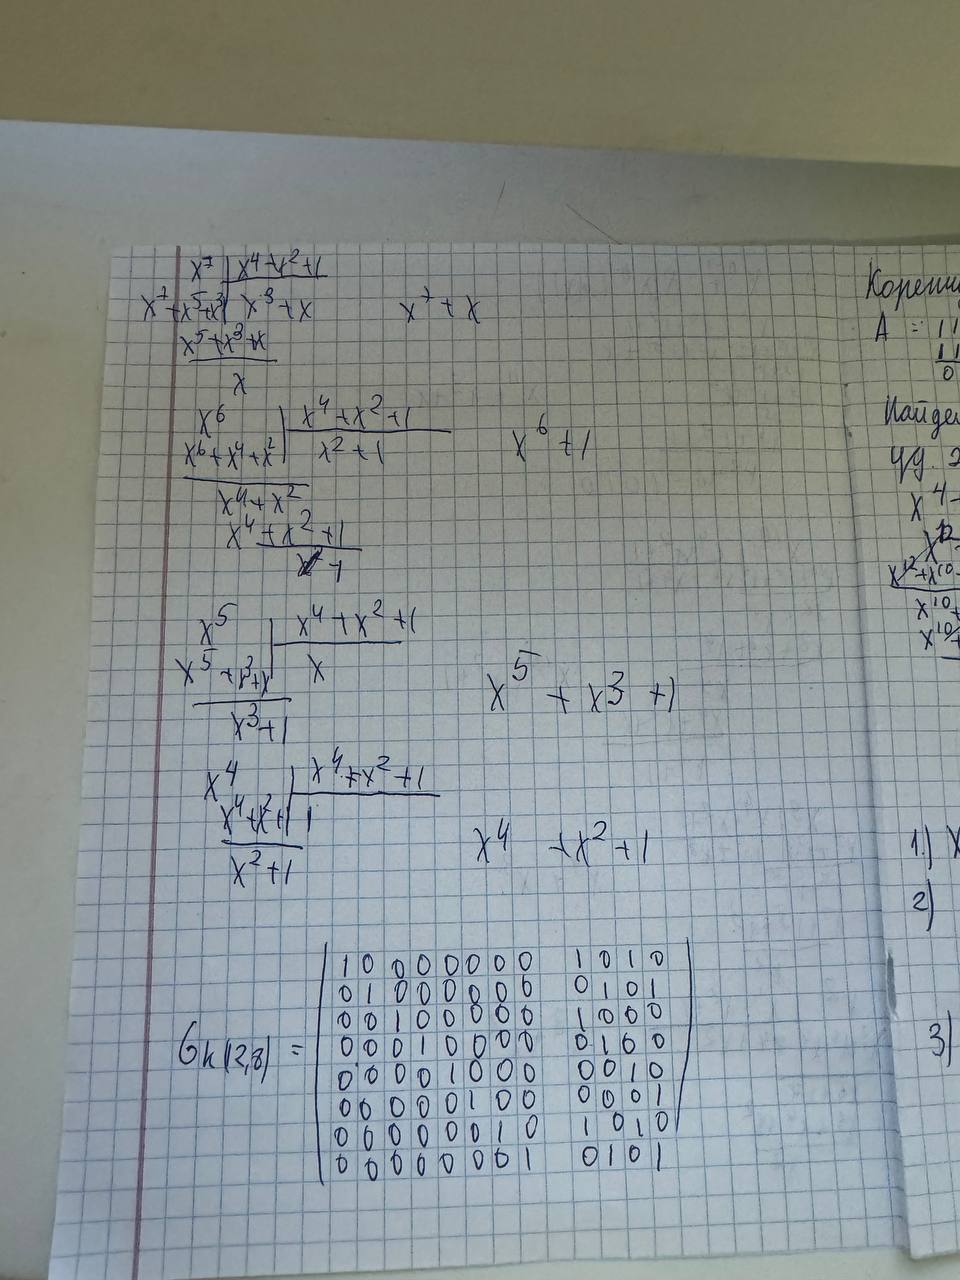 x⁷ | x⁴+x²+1
x⁷+x⁵+x³ | x³+x    x⁷+x
x⁵+x³+x
x
x⁶ | x⁴+x²+1
x⁶+x⁴+x² | x²+1    x⁶+1
x⁴+x²
x⁴+x²+1
1
x⁵ | x⁴+x²+1
x⁵+x³+x | x    x⁵+x³+1
x³+1
x⁴ | x⁴+x²+1
x⁴+x²+1 | 1    x⁴+x²+1
x²+1
1 0 0 0 0 0 0 0 1 0 1 0
0 1 0 0 0 0 0 0 0 1 0 1
0 0 1 0 0 0 0 0 1 0 0 0
Gk(12,8) = 0 0 0 1 0 0 0 0 0 1 0 0
0 0 0 0 1 0 0 0 0 0 1 0
0 0 0 0 0 1 0 0 0 0 0 1
0 0 0 0 0 0 1 0 1 0 1 0
0 0 0 0 0 0 0 1 0 1 0 1
A = 11
11
0
x⁴
x¹²
x¹²+x¹⁰
x¹⁰
x¹⁰
1) x
2)
3)